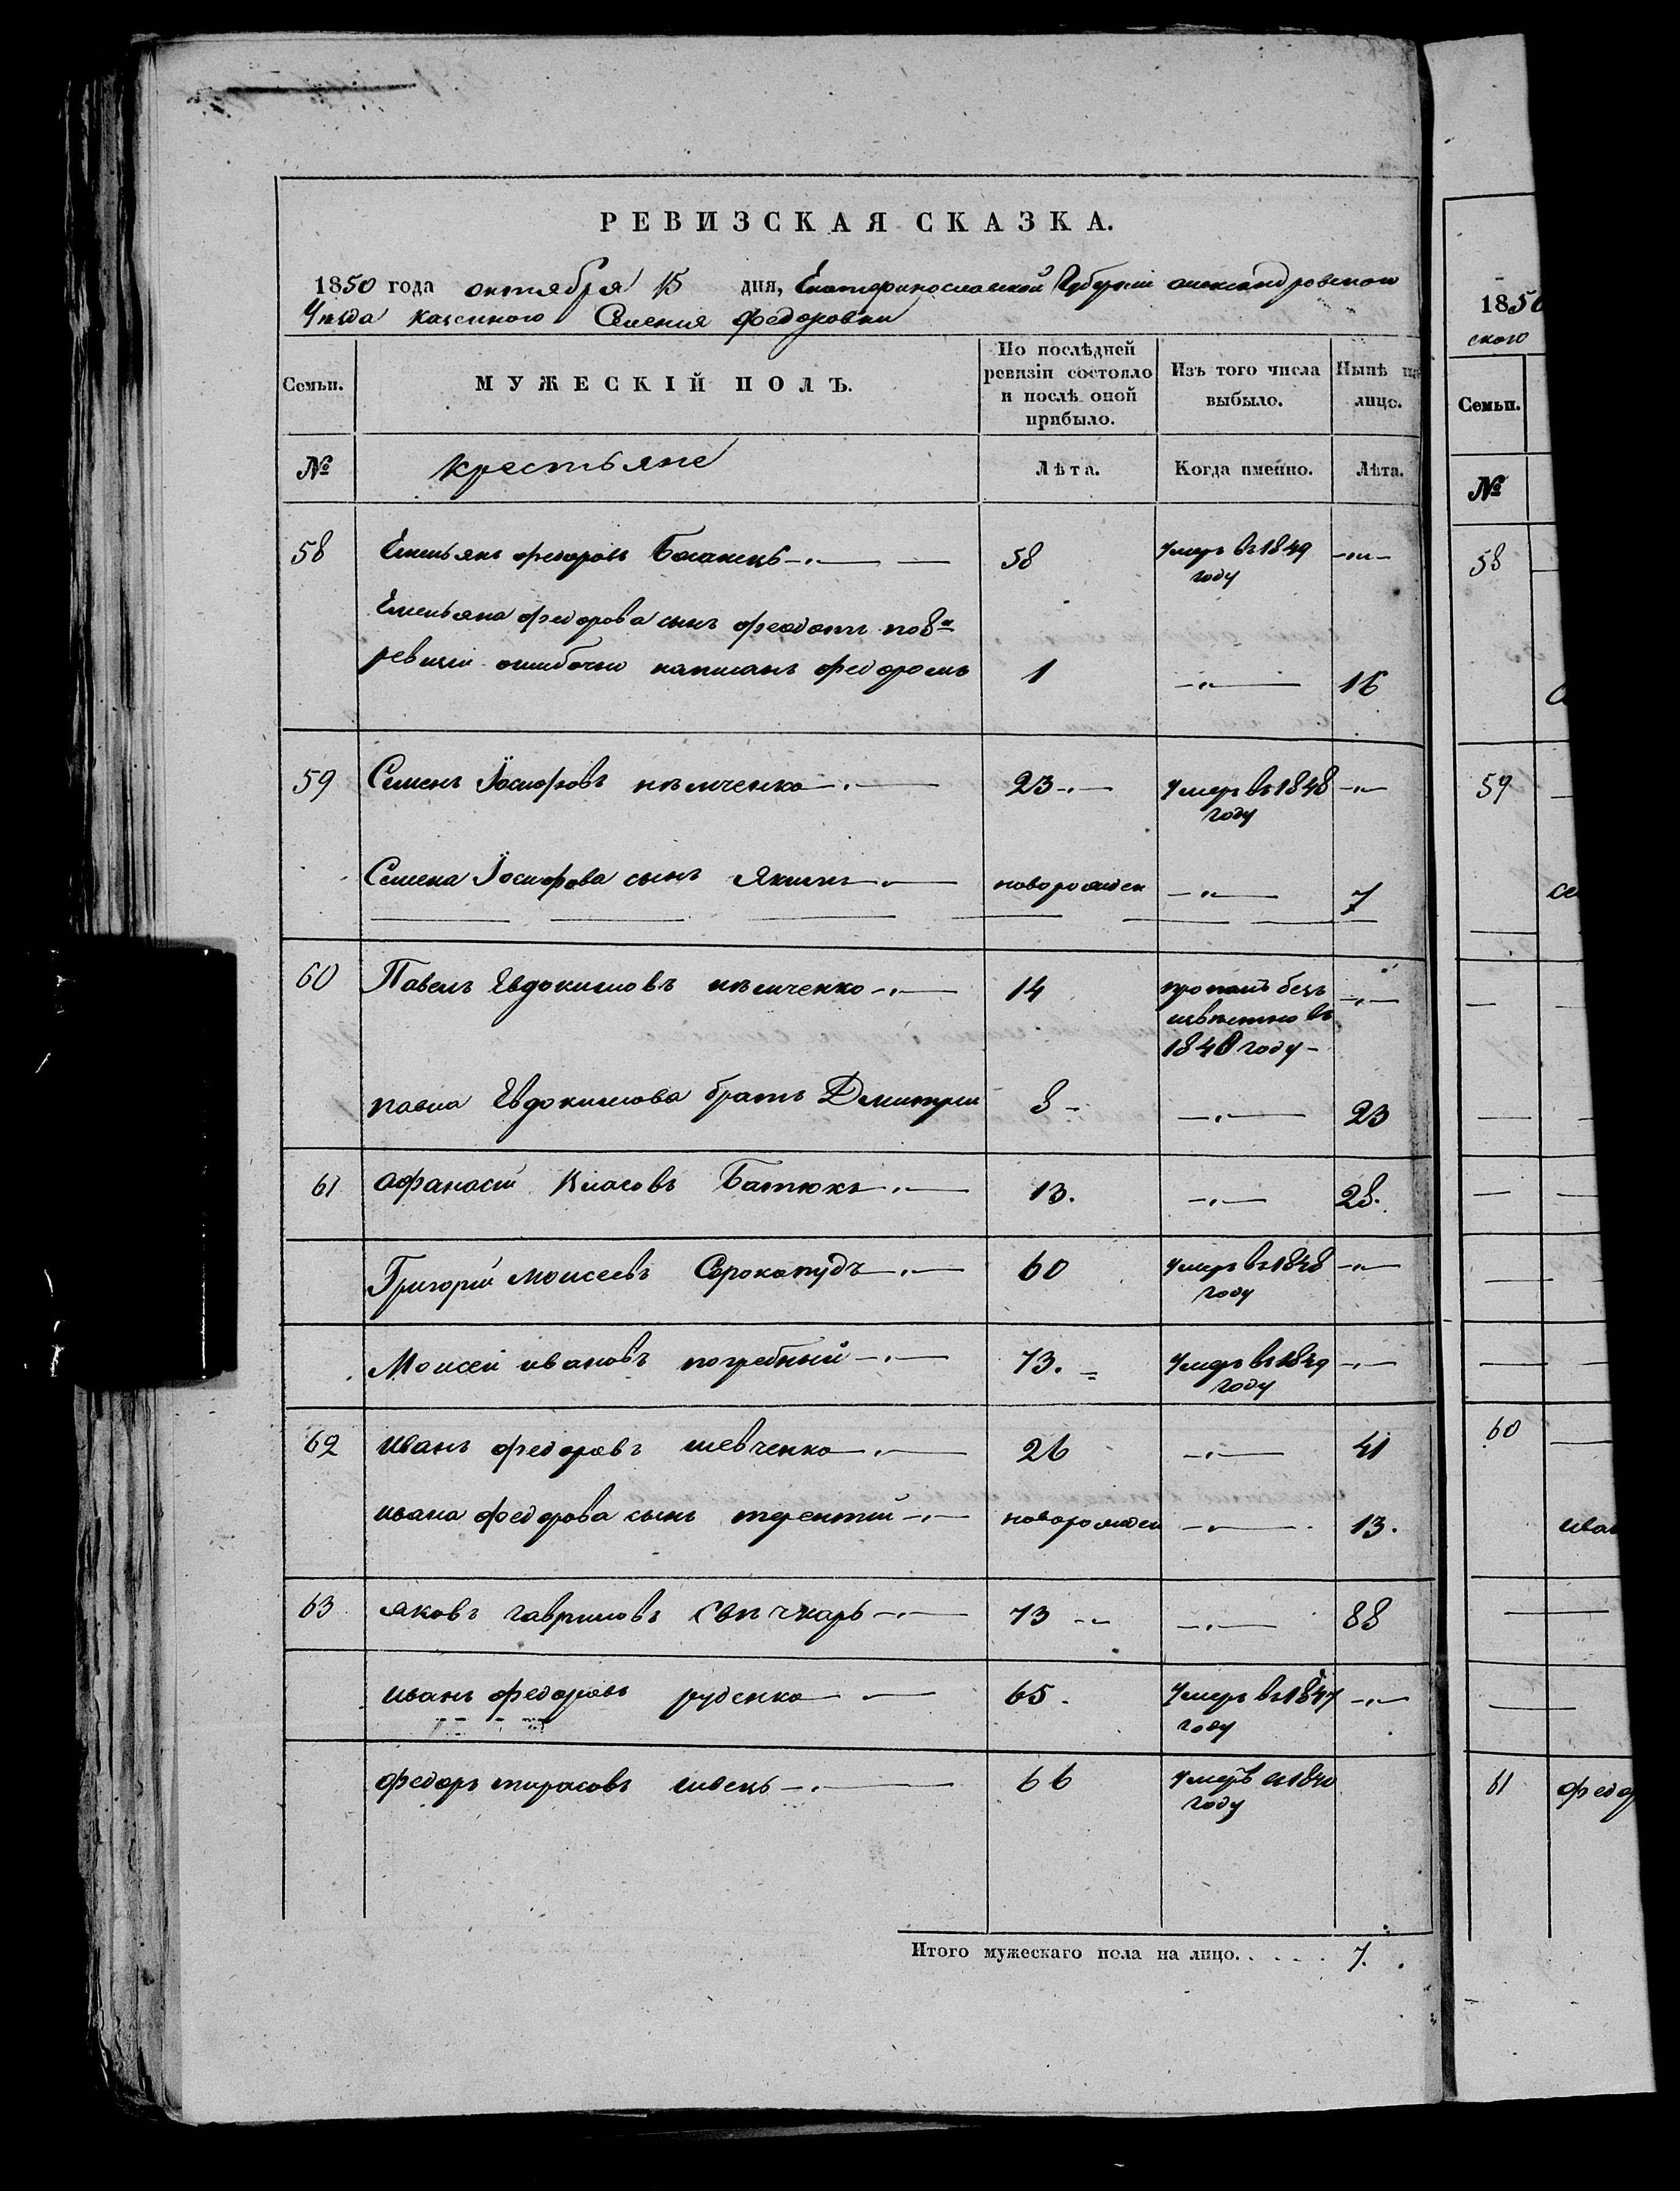 РЕВИЗСКАЯ СКАЗКА.
1850 года октября 15 дня, Екатеринославской Губерніи александровскаго
Уѣзда казеннаго Селенія Федоровки
Семьи. МУЖЕСКІЙ ПОЛЪ. По послѣдней ревизіи состояло и послѣ оной прибыло. Изъ того числа выбыло. Нынѣ на лицо.
№ крестьяне Лѣта. Когда именно. Лѣта.
58 Емельянъ федоровъ 58 умеръ въ 1849 году
Емельяна федорова сынъ феодотъ по 8й
ревизіи ошибочно написанъ федоромъ 1 16
59 Семенъ Іосифовъ нѣмченко 23 умеръ въ 1848 году
Семена Іосифова сынъ Якимъ новорожден 7
60 Павелъ Евдокимовъ нѣмченко 14 пропалъ безъ
извѣстно въ
1848 году
павла Евдокимова братъ Дмитрій 8 23
61 афанасій Власовъ Батюкъ 13. 28.
Григорій Моисеевъ Сорокопудъ 60 умеръ въ 1848 году
Моисей ивановъ погребный 73. умеръ въ 1849 году
62 иванъ федоровъ шевченко 26 41
ивана федорова сынъ терентій новорожден 13.
63 яковъ гавриловъ свѣчкарь 73 88
иванъ федоровъ руденко 65. умеръ въ 1847 году
федоръ тарасовъ швецъ 66 умеръ въ 1840 году
Итого мужескаго пола на лицо..... 7.
1850
ского
Семьи.
№
58
59
60
ива
61 федо